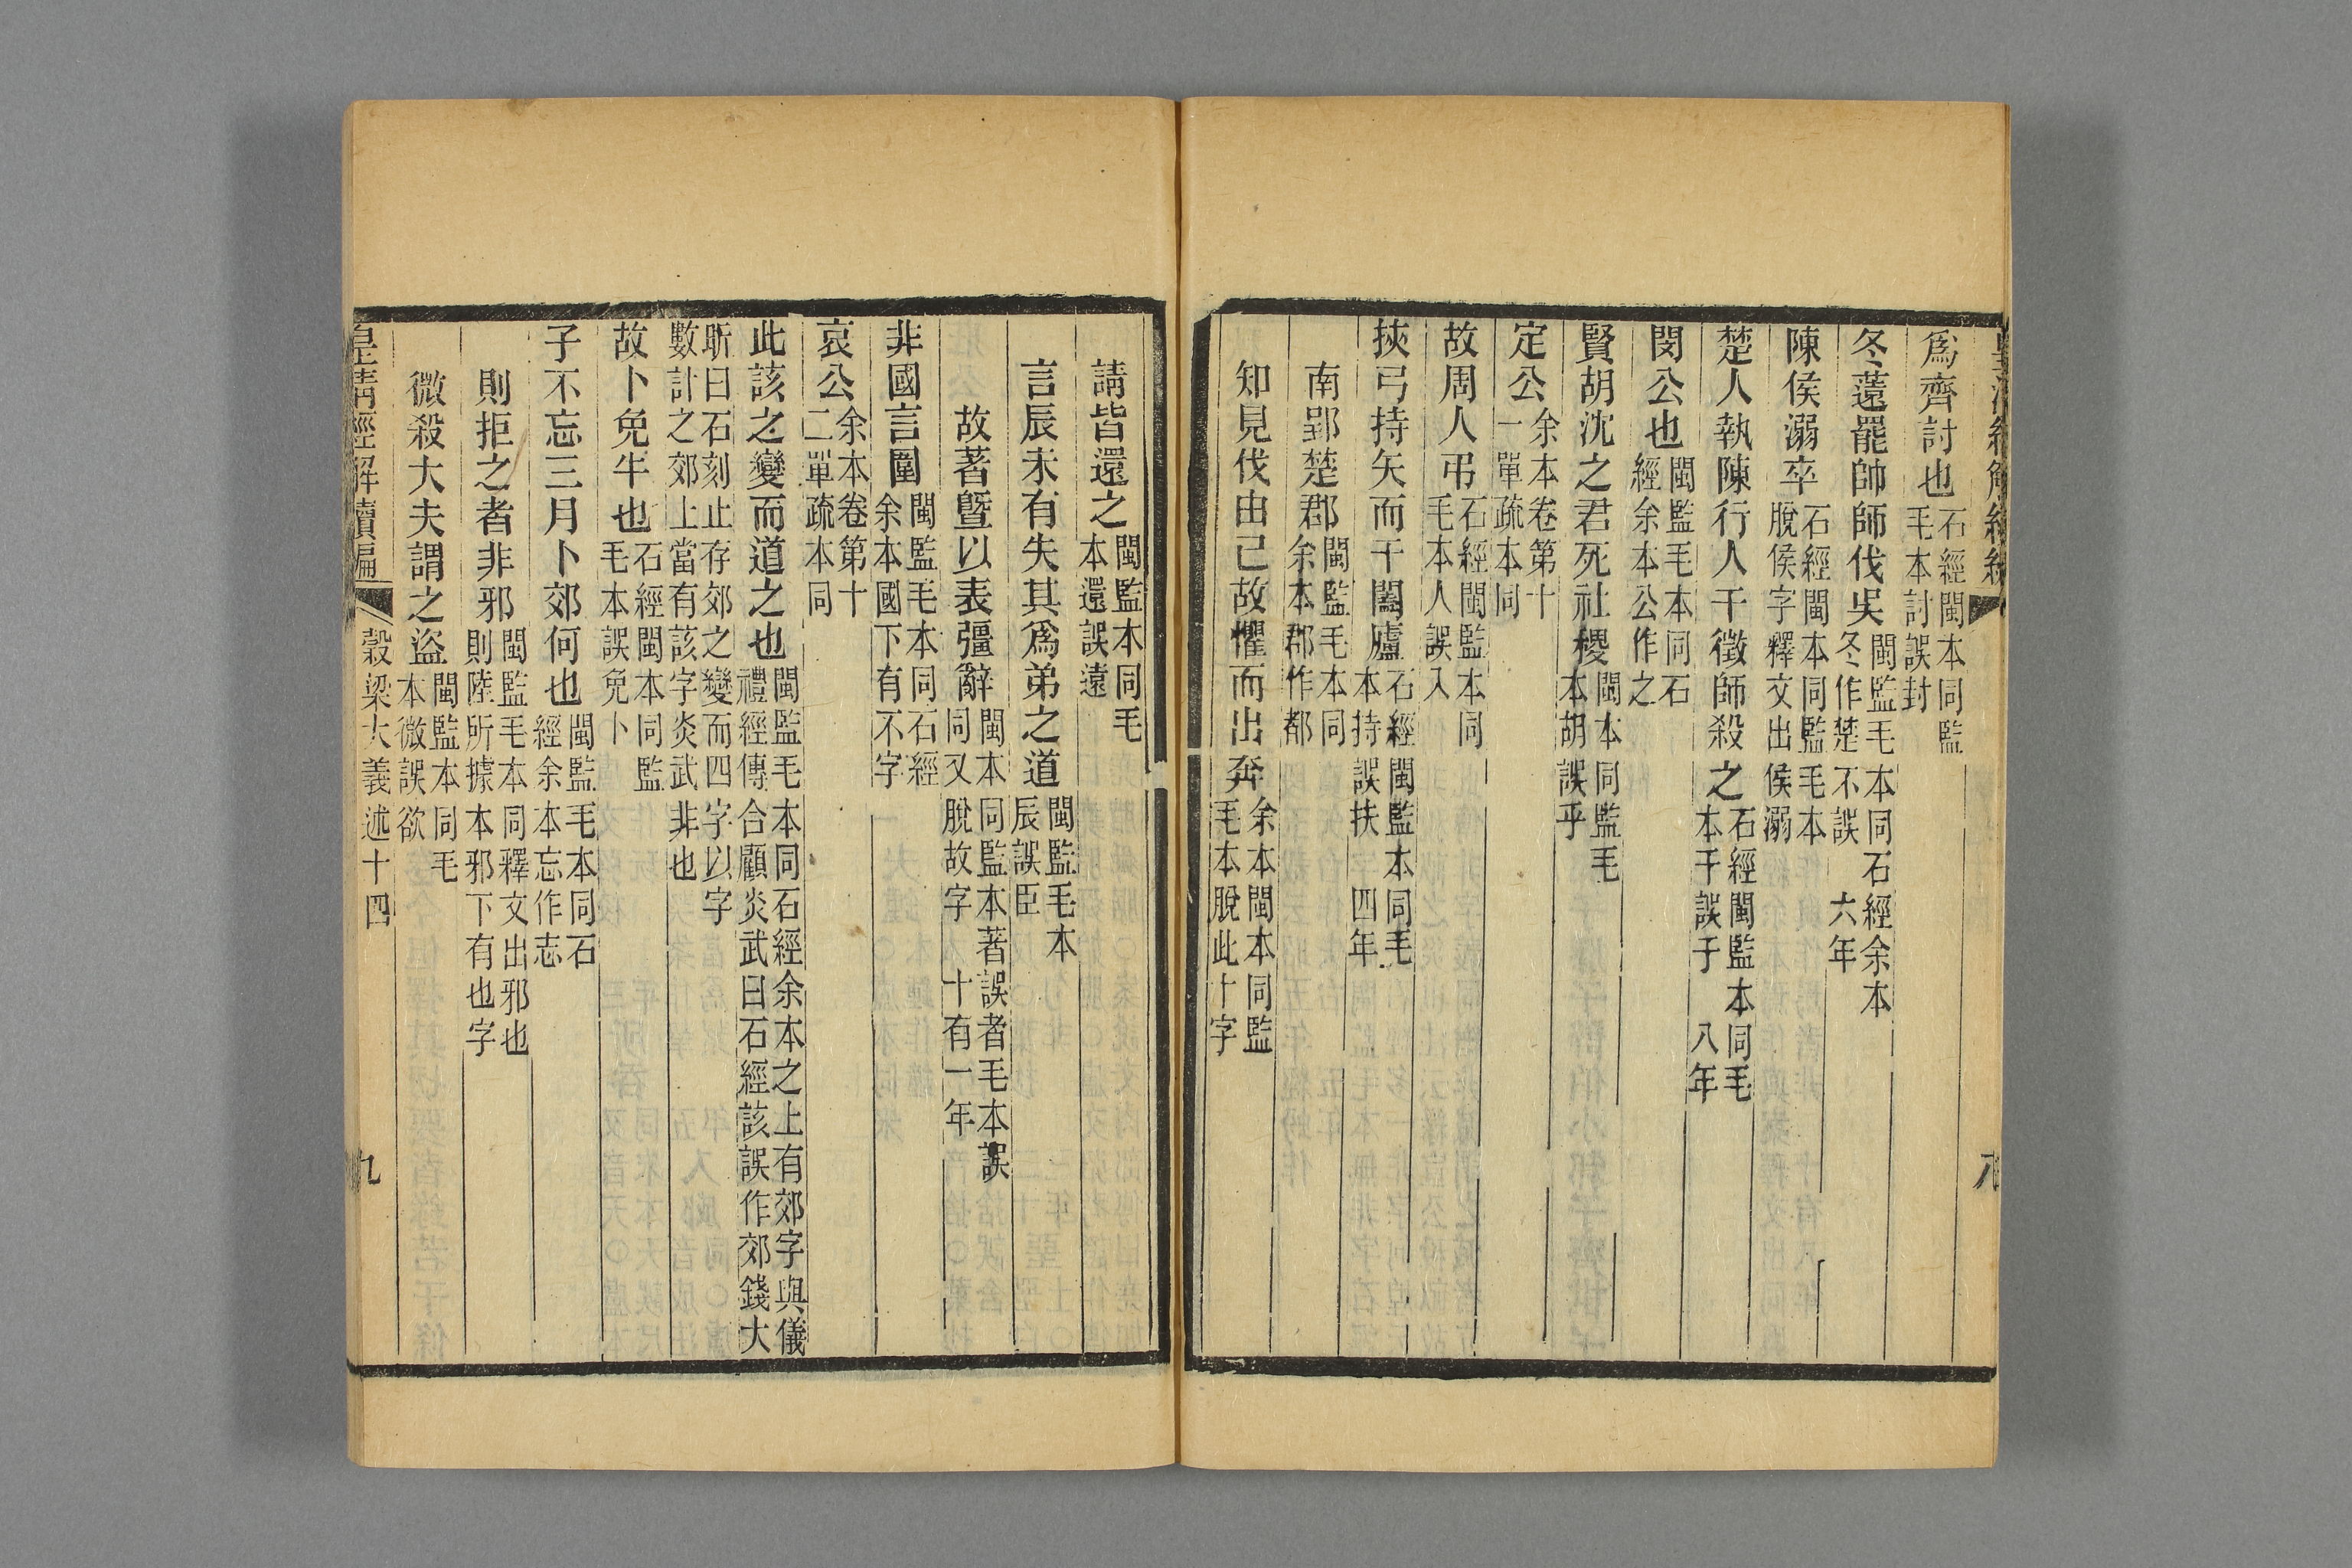 爲齊討也石經閩本同監毛本討誤封
冬薳罷帥師伐吳閩監毛本同石經余本冬作楚不誤 六年
陳侯溺卒石經閩本同監毛本脫侯字釋文出侯溺
楚人執陳行人干徵師殺之石經閩監本同毛本干誤于 八年
閔公也閩監毛本同石經余本公作之
賢胡沈之君死社稷閩本同監毛本胡誤乎
定公余本卷第十一單疏本同
故周人弔石經閩監本同毛本人誤入
挾弓持矢而干闔廬石經閩監本同毛本持誤扶 四年
南郢楚郡閩監毛本同余本郡作都
知見伐由己故懼而出奔余本閩本同監毛本脫此十字
請皆還之閩監本同毛本還誤遠
言辰未有失其爲弟之道閩監毛本辰誤臣
故著曁以表彊辭閩本同監本著誤者毛本誤同又脫故字 十有一年
非國言圍閩監毛本同石經余本國下有不字
哀公余本卷第十二單疏本同
此該之變而道之也閩監毛本同石經余本之上有郊字與儀禮經傳合顧炎武曰石經該誤作郊錢大
昕曰石刻止存郊之變而四字以字數計之郊上當有該字炎武非也
故卜免牛也石經閩本同監毛本誤免卜
子不忘三月卜郊何也閩監毛本同石經余本忘作志
則拒之者非邪閩監毛本同釋文出邪也則陸所據本邪下有也字
微殺大夫謂之盜閩監本同毛本微誤欲
皇清經解續編 穀梁大義述十四 九